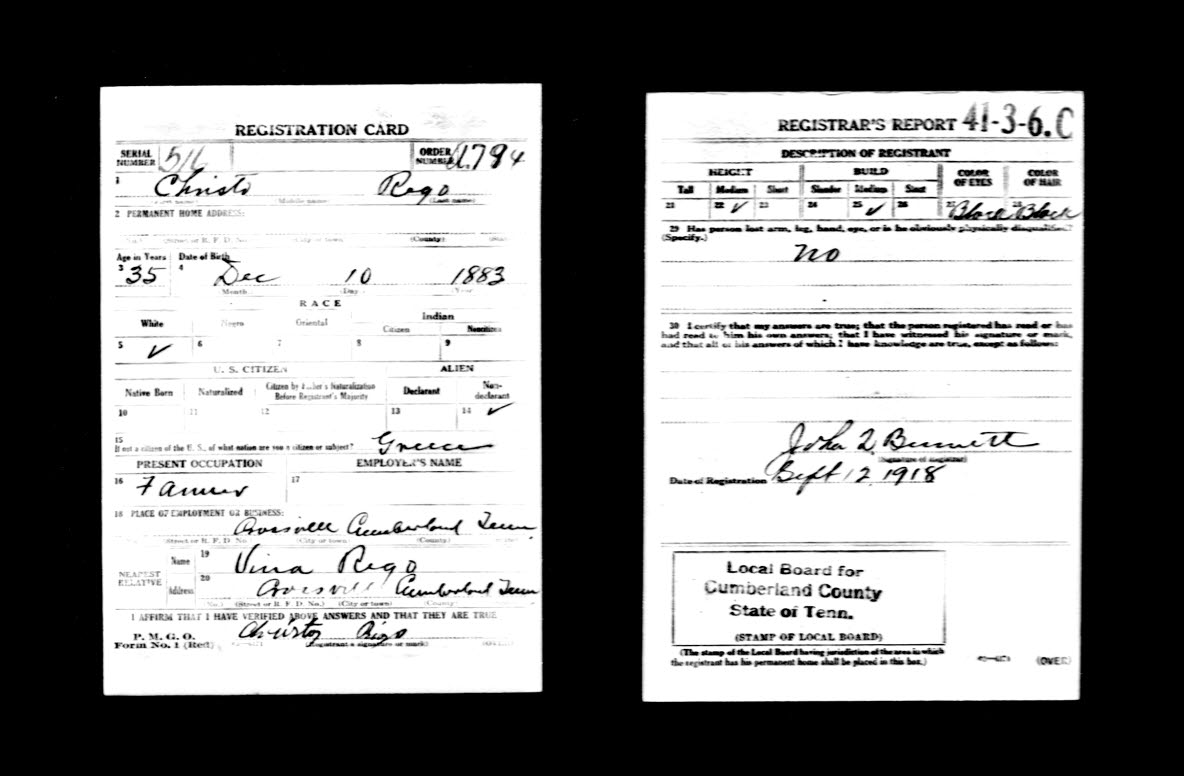 REGISTRATION CARD
SERIAL NUMBER 516 ORDER NUMBER 1794
1 Christo Rego
(First name) (Middle name) (Last name)
2 PERMANENT HOME ADDRESS:
(No.) (Street or R. F. D. No.) (City or town) (County) (State)
Age in Years Date of Birth
3 35 4 Dec 10 1883
Month Day Year
RACE
White Negro Oriental Indian
Citizen Noncitizen
5 ✓ 6 7 8 9
U. S. CITIZEN ALIEN
Native Born Naturalized Citizen by Father's Naturalization Before Registrant's Majority Declarant Non-declarant
10 11 12 13 14 ✓
15
If not a citizen of the U. S., of what nation are you a citizen or subject? Greece
PRESENT OCCUPATION EMPLOYER'S NAME
16 Farmer 17
18 PLACE OF EMPLOYMENT OR BUSINESS:
Crossville Cumberland Tenn
(Street or R. F. D. No.) (City or town) (County)
NEAREST RELATIVE Name 19 Vina Rego
Address 20 Crossville Cumberland Tenn
(No.) (Street or R. F. D. No.) (City or town) (County)
I AFFIRM THAT I HAVE VERIFIED ABOVE ANSWERS AND THAT THEY ARE TRUE
P. M. G. O.
Form No. 1 (Red) Rigo
(Registrant's signature or mark) (OVER)
REGISTRAR'S REPORT 41-3-6.C
DESCRIPTION OF REGISTRANT
HEIGHT BUILD COLOR OF EYES COLOR OF HAIR
Tall Medium Short Slender Medium Stout
21 22 ✓ 23 24 25 ✓ 26 27 Black 28 Black
29 Has person lost arm, leg, hand, eye, or is he obviously physically disqualified?
(Specify.)
No
30 I certify that my answers are true; that the person registered has read or has
had read to him his own answers; that I have witnessed his signature or mark,
and that all of his answers of which I have knowledge are true, except as follows:
John Q. Burnett
(Signature of Registrar)
Date of Registration Sept 12 1918
Local Board for
Cumberland County
State of Tenn.
(STAMP OF LOCAL BOARD)
(The stamp of the Local Board having jurisdiction of the area in which
the registrant has his permanent home shall be placed in this box.)
(OVER)